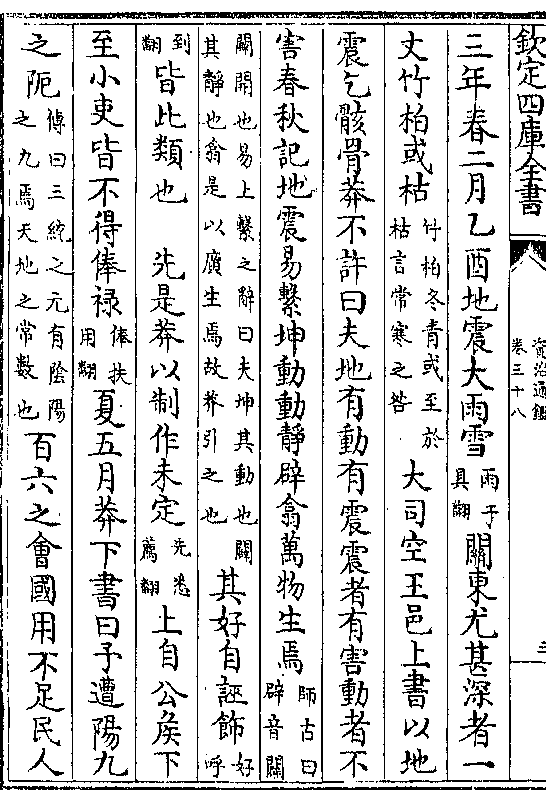 欽定四庫全書
資治通鑑
卷三十八
三
三年春二月乙酉地震大雨雪
雨于
具翻
關東尤甚深者一
丈竹柏或枯
竹柏冬青或至於
枯言常寒之咎
大司空王邑上書以地
震乞骸骨莽不許曰夫地有動有震震者有害動者不
害春秋記地震易繫坤動動靜辟翕萬物生焉
師古曰
辟音闢
闢開也易上繫之辭曰夫坤其動也闢
其靜也翕是以廣生焉故莽引之也
其好自誣飾
好
呼
到
翻
皆此類也　先是莽以制作未定
先悉
薦翻
上自公侯下
至小吏皆不得俸祿
俸扶
用翻
夏五月莽下書曰予遭陽九
之阨
傳曰三統之元有陰陽
之九焉天地之常數也
百六之會國用不足民人